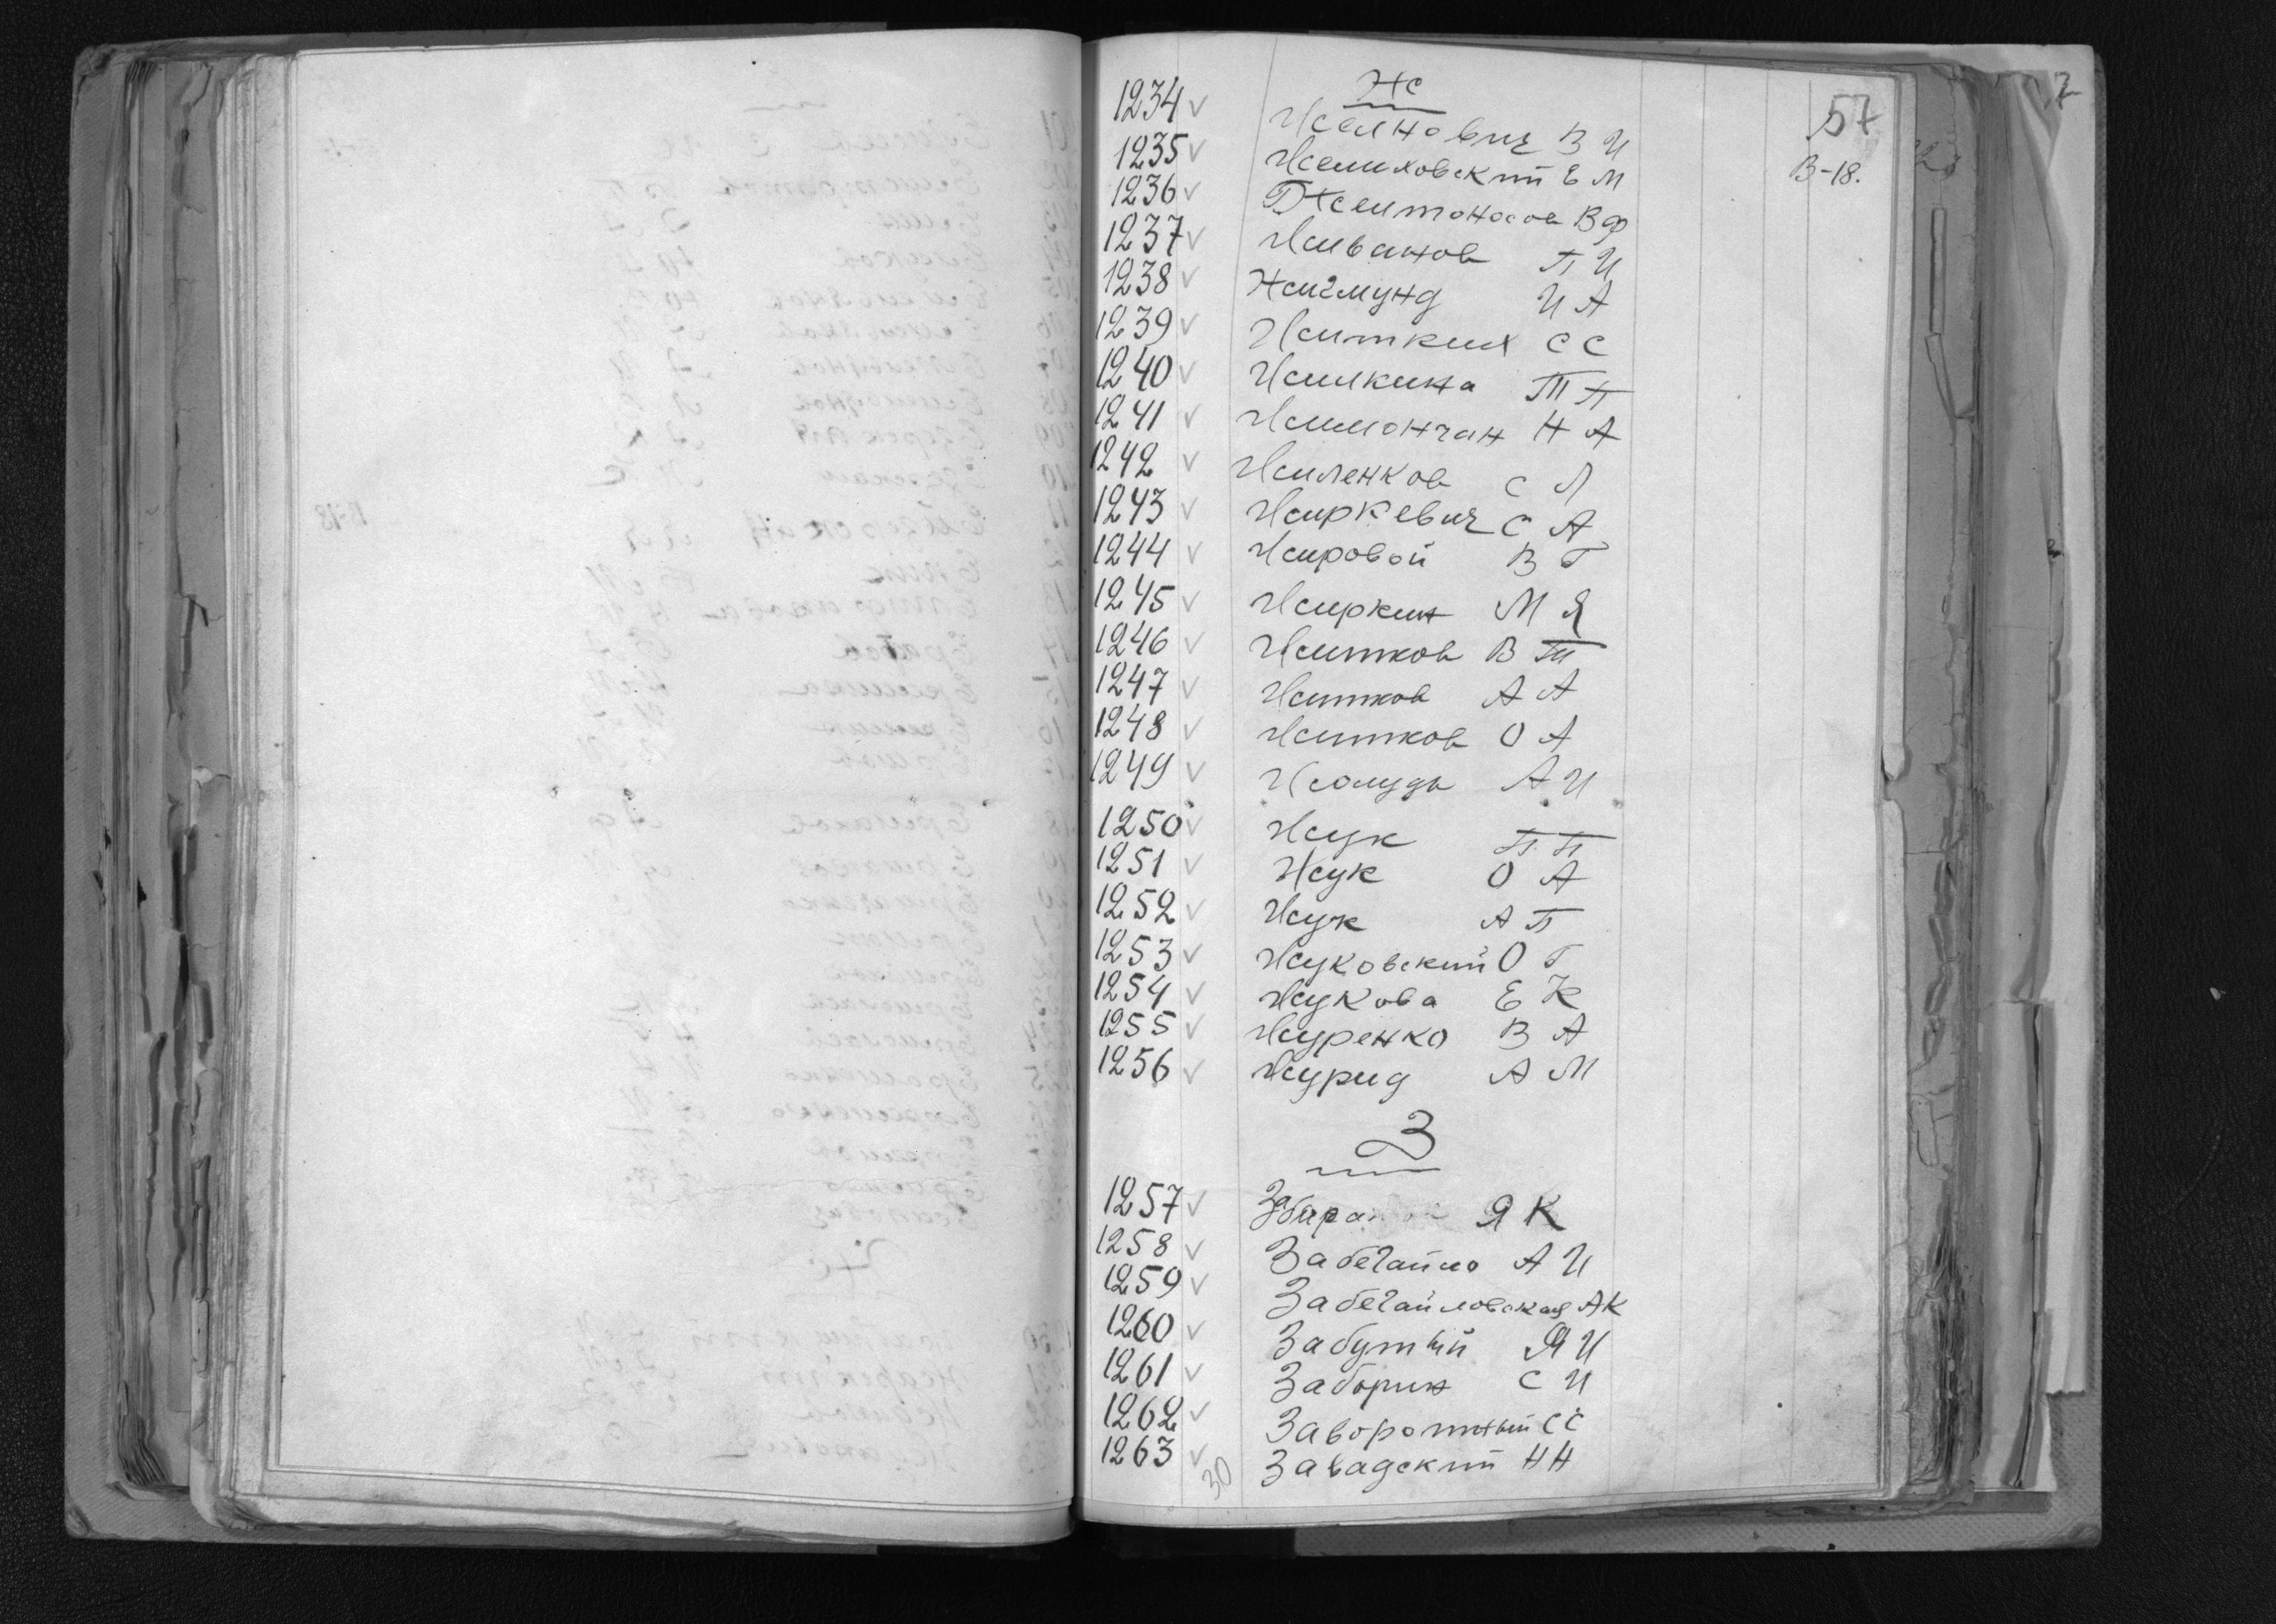 57
Ж
1234 ✓ Желнович В И
1235 ✓ Желиховский Е М В-18.
1236 ✓ Желтоносов В Ф
1237 ✓ Живанов П И
1238 ✓ Жигмунд И А
1239 ✓ Житких С С
1240 ✓ Жилкина Т П
1241 ✓ Жимончан Н А
1242 ✓ Жиленков С Л
1243 ✓ Жиркевич С А
1244 ✓ Жировой В Г
1245 ✓ Жиркин М Я
1246 ✓ Житков В Т
1247 ✓ Житков А А
1248 ✓ Житков О А
1249 ✓ Жолудь А И
1250 ✓ Жук П П
1251 ✓ Жук О А
1252 ✓ Жук А П
1253 ✓ Жуковский О Г
1254 ✓ Жукова Е К
1255 ✓ Журенко В А
1256 ✓ Журид А М
З
1257 ✓ Я К
1258 ✓ Забегайло А И
1259 ✓ Забегайловская А К
1260 ✓ Забутый Я И
1261 ✓ Заборин С И
1262 ✓ Заворотный С С
1263 ✓ Завадский Н Н
30